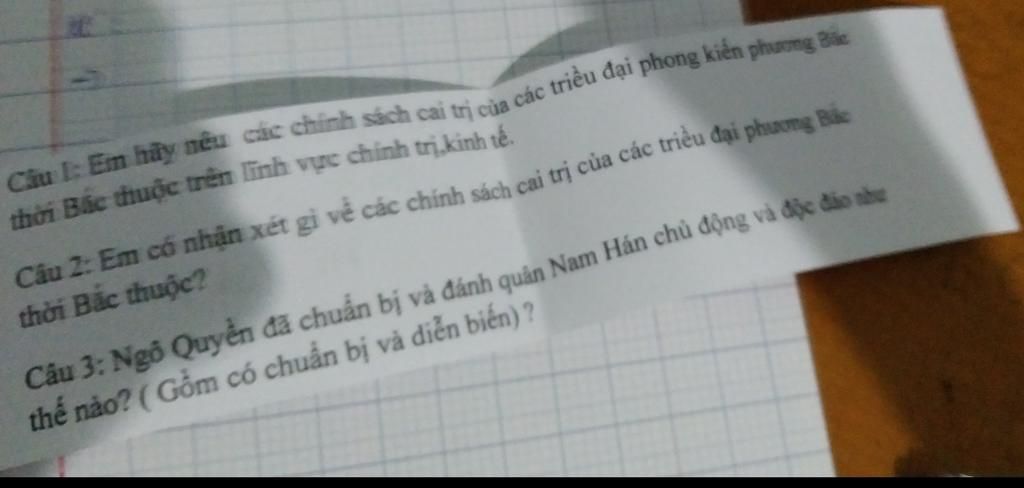 Câu 1: Em hãy nêu các chính sách cai trị của các triều đại phong kiến phương Bắc
thời Bắc thuộc trên lĩnh vực chính trị,kinh tế.
Câu 2: Em có nhận xét gì về các chính sách cai trị của các triều đại phương Bắc
thời Bắc thuộc?
Câu 3: Ngô Quyền đã chuẩn bị và đánh quân Nam Hán chủ động và độc đáo như
thế nào? ( Gồm có chuẩn bị và diễn biến) ?